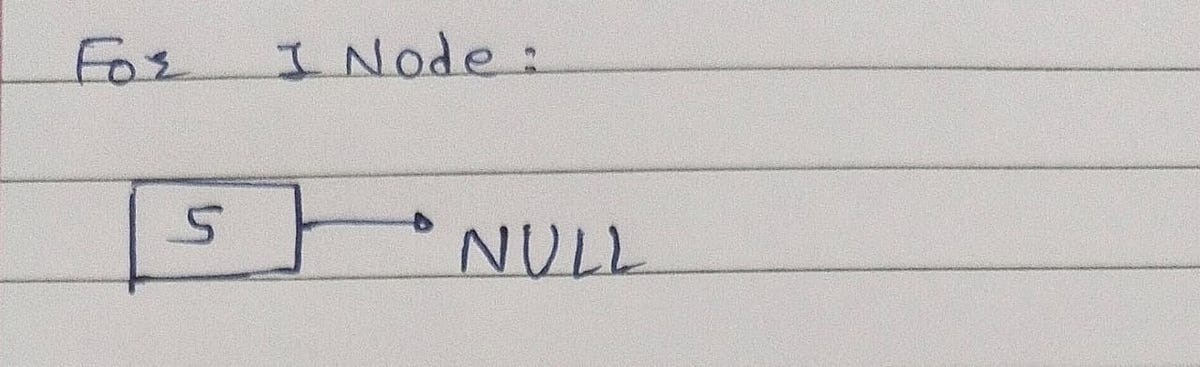 For 1 Node:
5
NULL